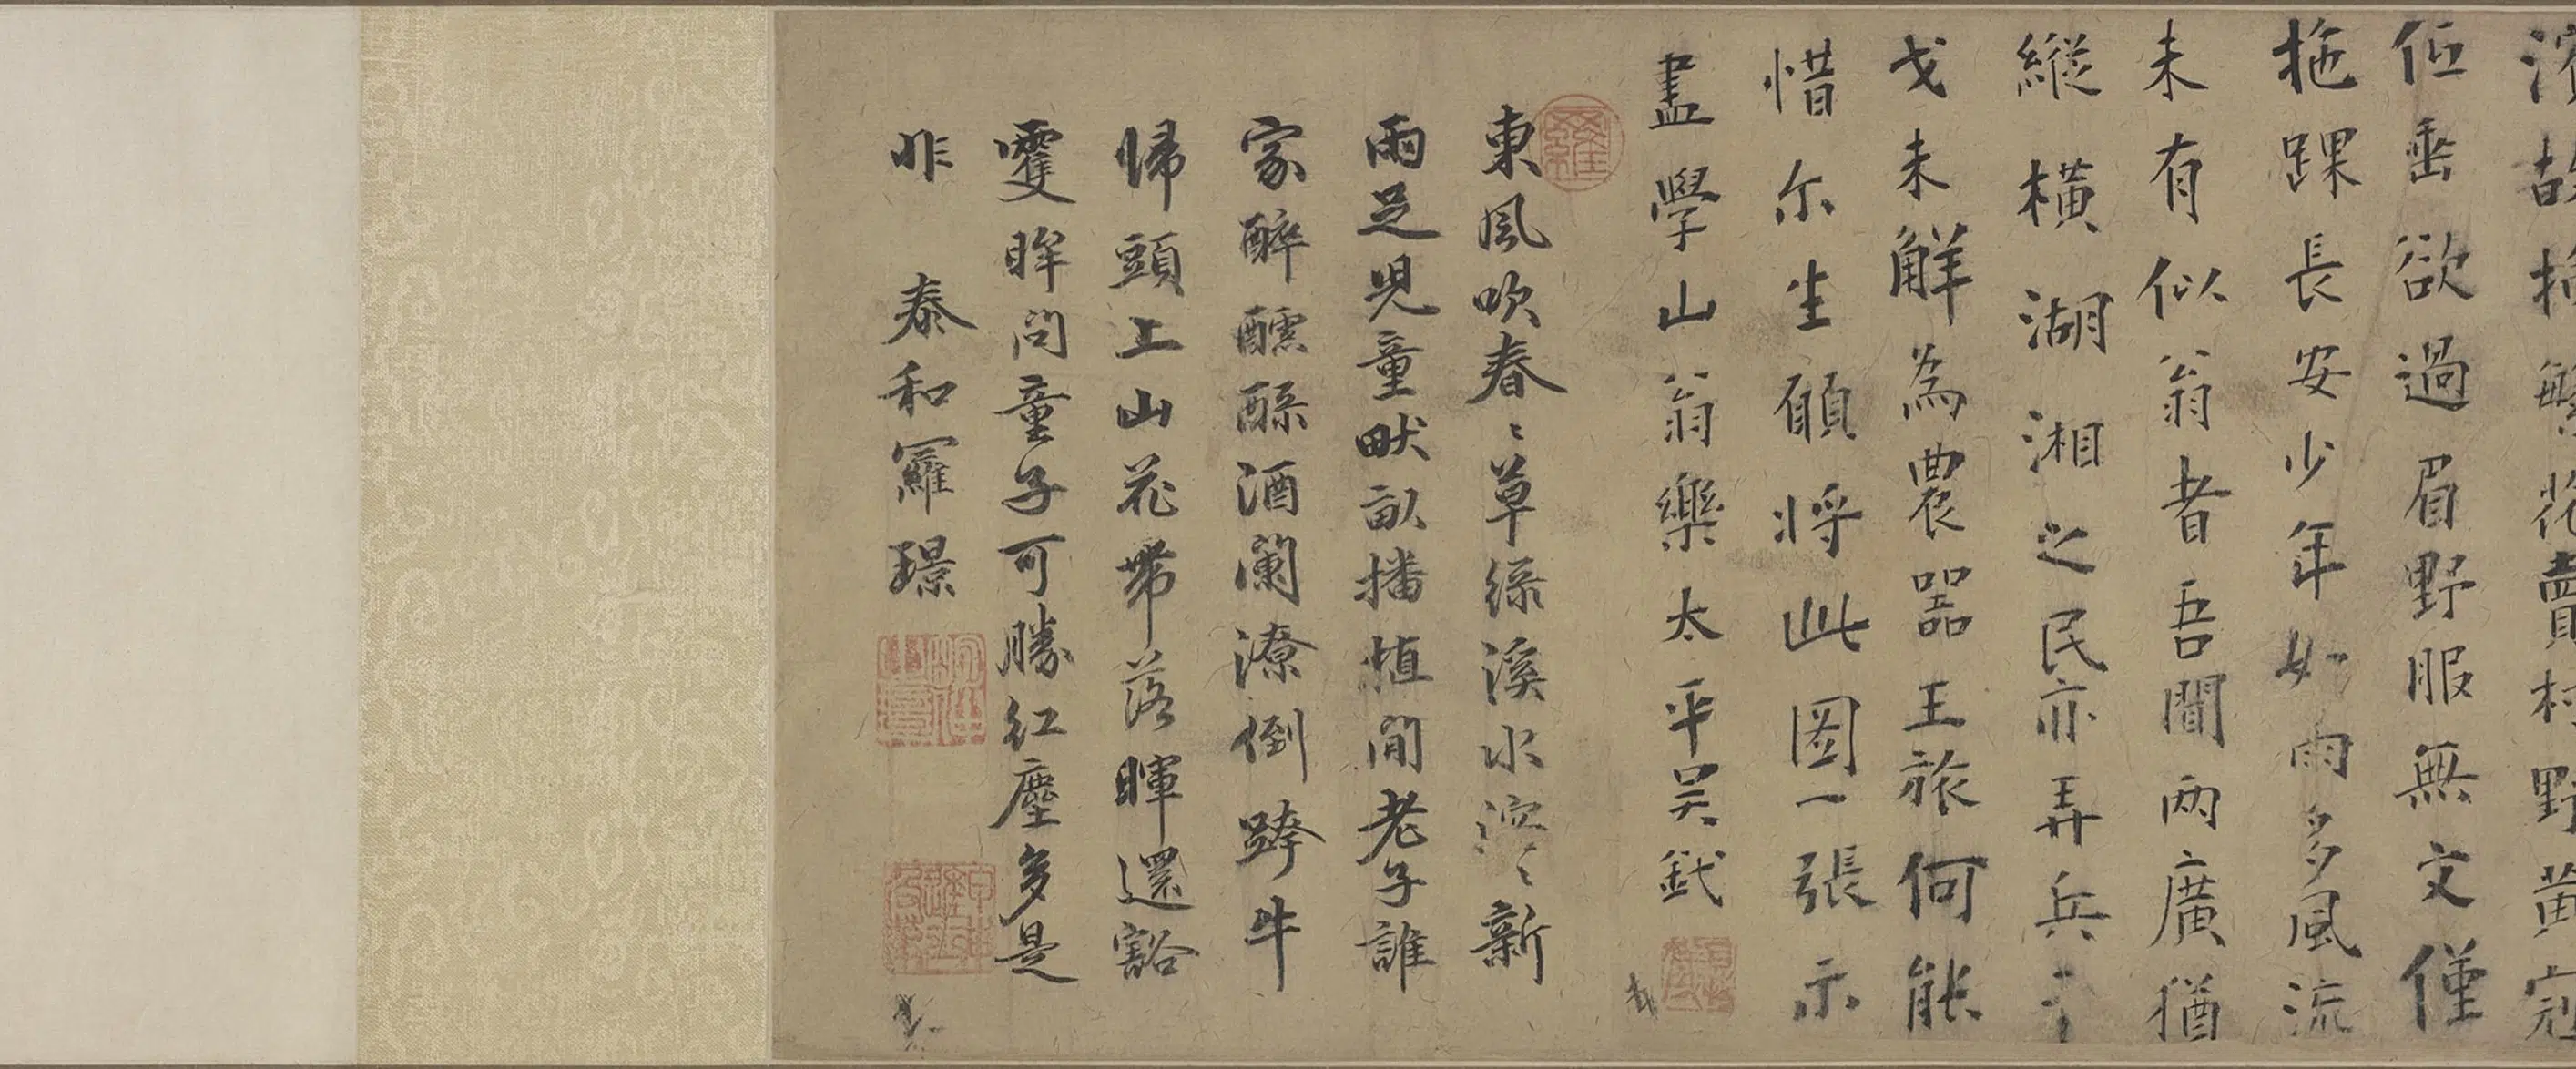 濱故梅繁花賣村野黃冠
伍垂欲過眉野服無文僅
拖踝長安少年如雨多風流
未有似翁者吾聞兩廣猶
縱橫湖湘之民亦弄兵
戈未解為農器王旅何能
惜尔生願將此圖一張示
盡學山翁樂太平吳釴
東風吹春〻草綠溪水泻〻新
雨足兒童畎畝播植閒老子誰
家醉醺酥酒闌潦倒跨牛
歸頭上山花帶落暉還豁
雙眸問童子可勝紅塵多是
非 泰和羅璟